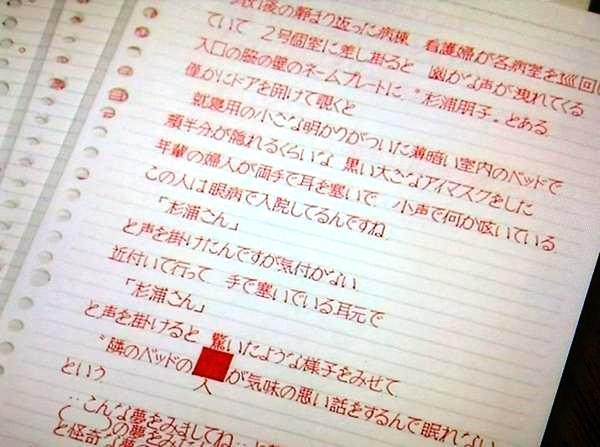 後の静まり返った病棟 看護婦が各病室を巡回し
ていて 2号個室に差し掛ると 幽かな声が洩れてくる
入口の脇の壁のネームプレートに、〝杉浦朋子〟とある
僅かにドアを開けて覗くと
就寝用の小さな明かりがついた薄暗い室内のベッドで
顔半分が隠れるくらいな 黒い大きなアイマスクをした
年輩の婦人が両手で耳を塞いで 小声で何か呟いている
この人は眼病で入院してるんですね
「杉浦さん」
と声を掛けたんですが気付かない
近付いて行って 手で塞いでいる耳元で
「杉浦さん」
と声を掛けると 驚いたような様子をみせて
〝隣のベッドの 人が気味の悪い話をするんで眠れない
という
…こんな夢をみましてね…と
の夢をみ
と怪奇な夢を